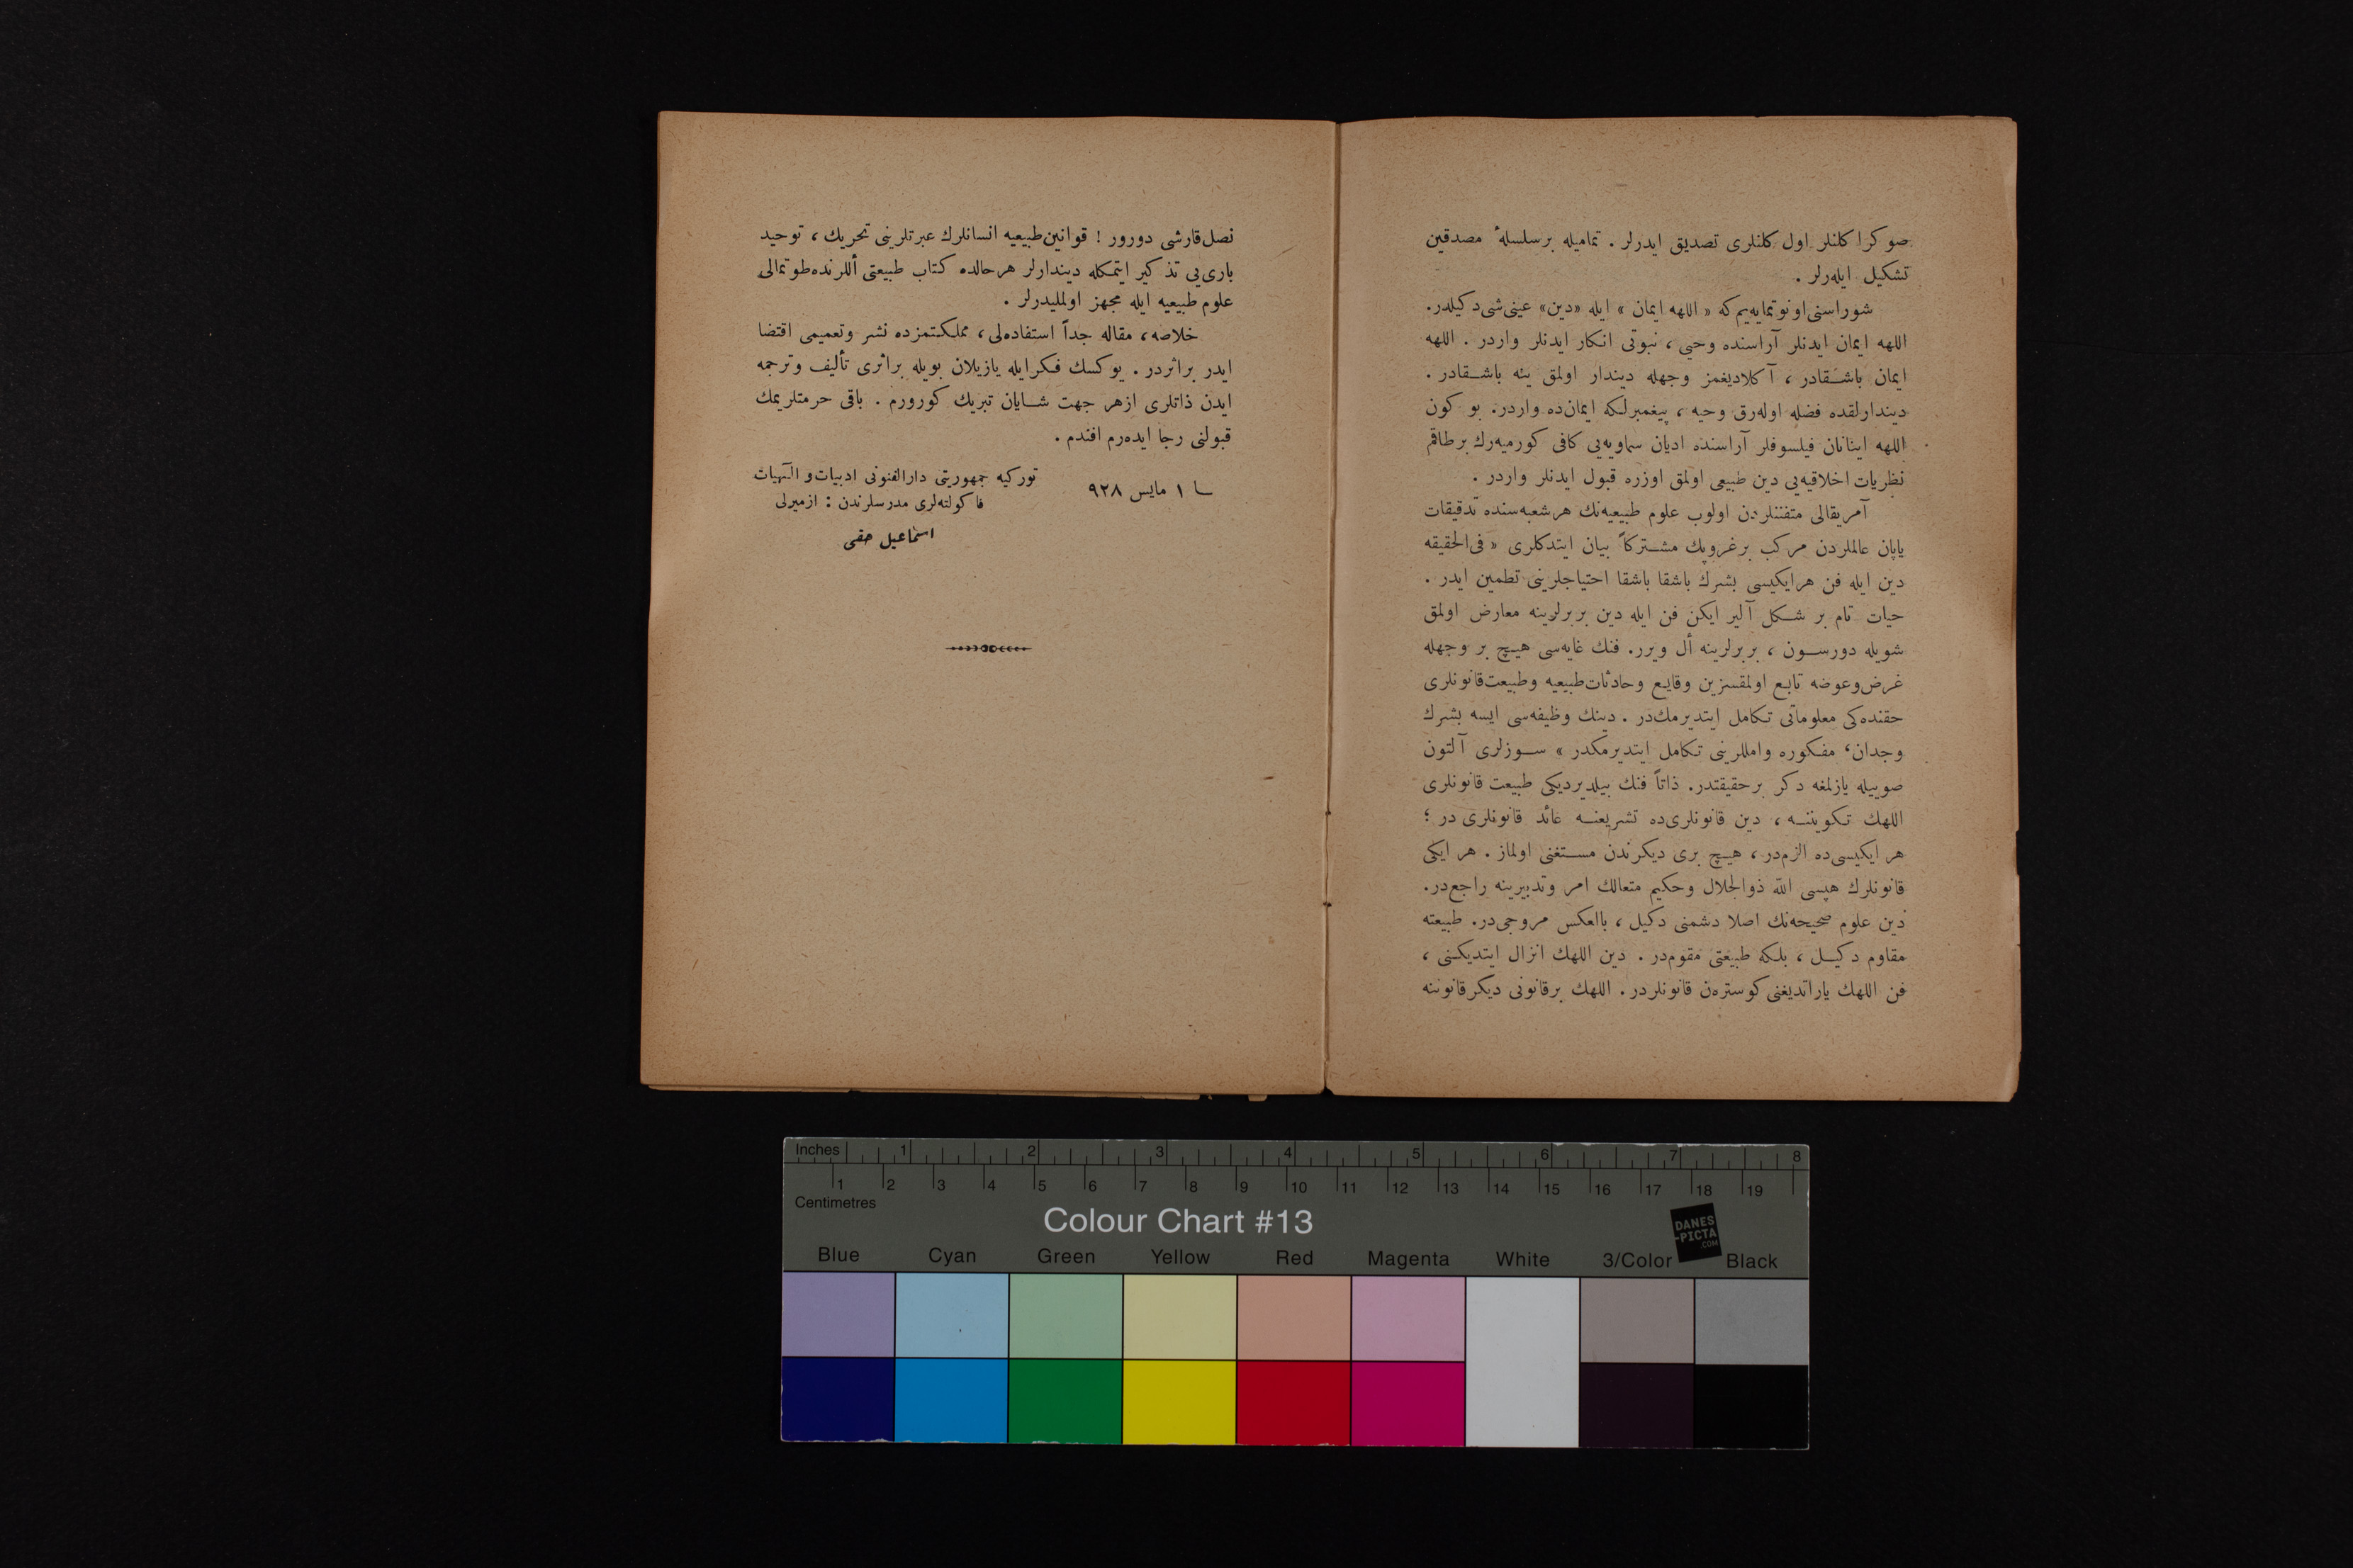 صوكرا كلنلر اول كلنلری تصدیق ایدرلر . تمامیله برسلسلهٔ مصدقین
تشكیل ایله‌رلر .
شوراسنی اونوتمایه‌یم كه « اللهه ایمان » ایله «دین» عینی شی دكیلدر.
اللهه ایمان ایدنلر آراسنده وحیی ، نبوتی انكار ایدنلر واردر . اللهه
ایمان باشـقادر ، آكلادیغمز وجهله دیندار اولمق ینه باشـقادر .
دیندارلقده فضله اوله‌رق وحیه ، پیغمبرلكه ایمان‌ده واردر. بو كون
اللهه اینانان فیلسوفلر آراسنده ادیان سماویه‌یی كافی كورمیه‌رك برطاقم
نظریات اخلاقیه‌یی دین طبیعی اولمق اوزره قبول ایدنلر واردر .
آمریقالی متفننلردن اولوب علوم طبیعیه‌نك هرشعبه‌سنده تدقیقات
یاپان عالملردن مركب برغروپك مشـتركاً بیان ایتدكلری « فی‌الحقیقه
دین ایله فن هرایكیسی بشرك باشقا باشقا احتیاجلرینی تطمین ایدر .
حیات تام بر شـكل آلیر ایكن فن ایله دین بربرلرینه معارض اولمق
شویله دورسـون ، بربرلرینه أل ویرر. فنك غایه‌سی هیچ بر وجهله
غرض‌وعوضه تابع اولمقسزین وقایع وحادثات‌طبیعیه وطبیعت‌قانونلری
حقنده‌كی معلوماتی تكامل ایتدیرمك‌در . دینك وظیفه‌سی ایسه بشرك
وجدان، مفكوره واملارینی تكامل ایتدیرمكدر » سـوزلری آلتون
صوییله یازلمغه دكر برحقیقتدر. ذاتاً فنك بیلدیردیكی طبیعت قانونلری
اللهك تكویننـه ، دین قانونلری‌ده تشریعنـه عائد قانونلری در ؛
هر ایكیسی‌ده الزم‌در ، هیچ بری دیكرندن مسـتغنی اولماز . هر ایكی
قانونلرك هپسی الله ذوالجلال وحكیم متعالك امر وتدبیرینه راجع‌در.
دین علوم صحیحه‌نك اصلا دشمنی دكیل ، بالعكس مروجی‌در. طبیعته
مقاوم دكیـل ، بلكه طبیعتی مقوم‌در . دین اللهك انزال ایتدیكنی ،
فن اللهك یاراتدیغنی كوسترەن قانونلردر. اللهك برقانونی دیكرقانوننه
نصل‌قارشی دورور ! قوانین‌طبیعیه انسانلرك عبرتلرینی تحریك ، توحید
باری‌یی تذكیر ایتمكله دیندارلر هرحالده كتاب طبیعتی أللرنده‌طوتمالی
علوم طبیعیه ایله مجهز اولملیدرلر .
خلاصه، مقاله جداً استفاده‌لی، مملكتمزده نشر وتعمیمی اقتضا
ایدر براثردر . یوكسك فكرایله یازیلان بویله براثری تألیف وترجمه
ایدن ذاتلری ازهر جهت شـایان تبریك كورورم . باقی حرمتلریمك
قبولنی رجا ایده‌رم افندم .
١ مایس ٩٢٨
توركیه جمهوریتی دارالفنونی ادبیات و الٓهیات
فاكولته‌لری مدرسلرندن : ازمیرلی
اسماعیل حقی
Inches 1 2 3 4 5 6 7 8
1 2 3 4 5 6 7 8 9 10 11 12 13 14 15 16 17 18 19
Centimetres
Colour Chart #13
DANES
-PICTA
.COM
Blue Cyan Green Yellow Red Magenta White 3/Color Black